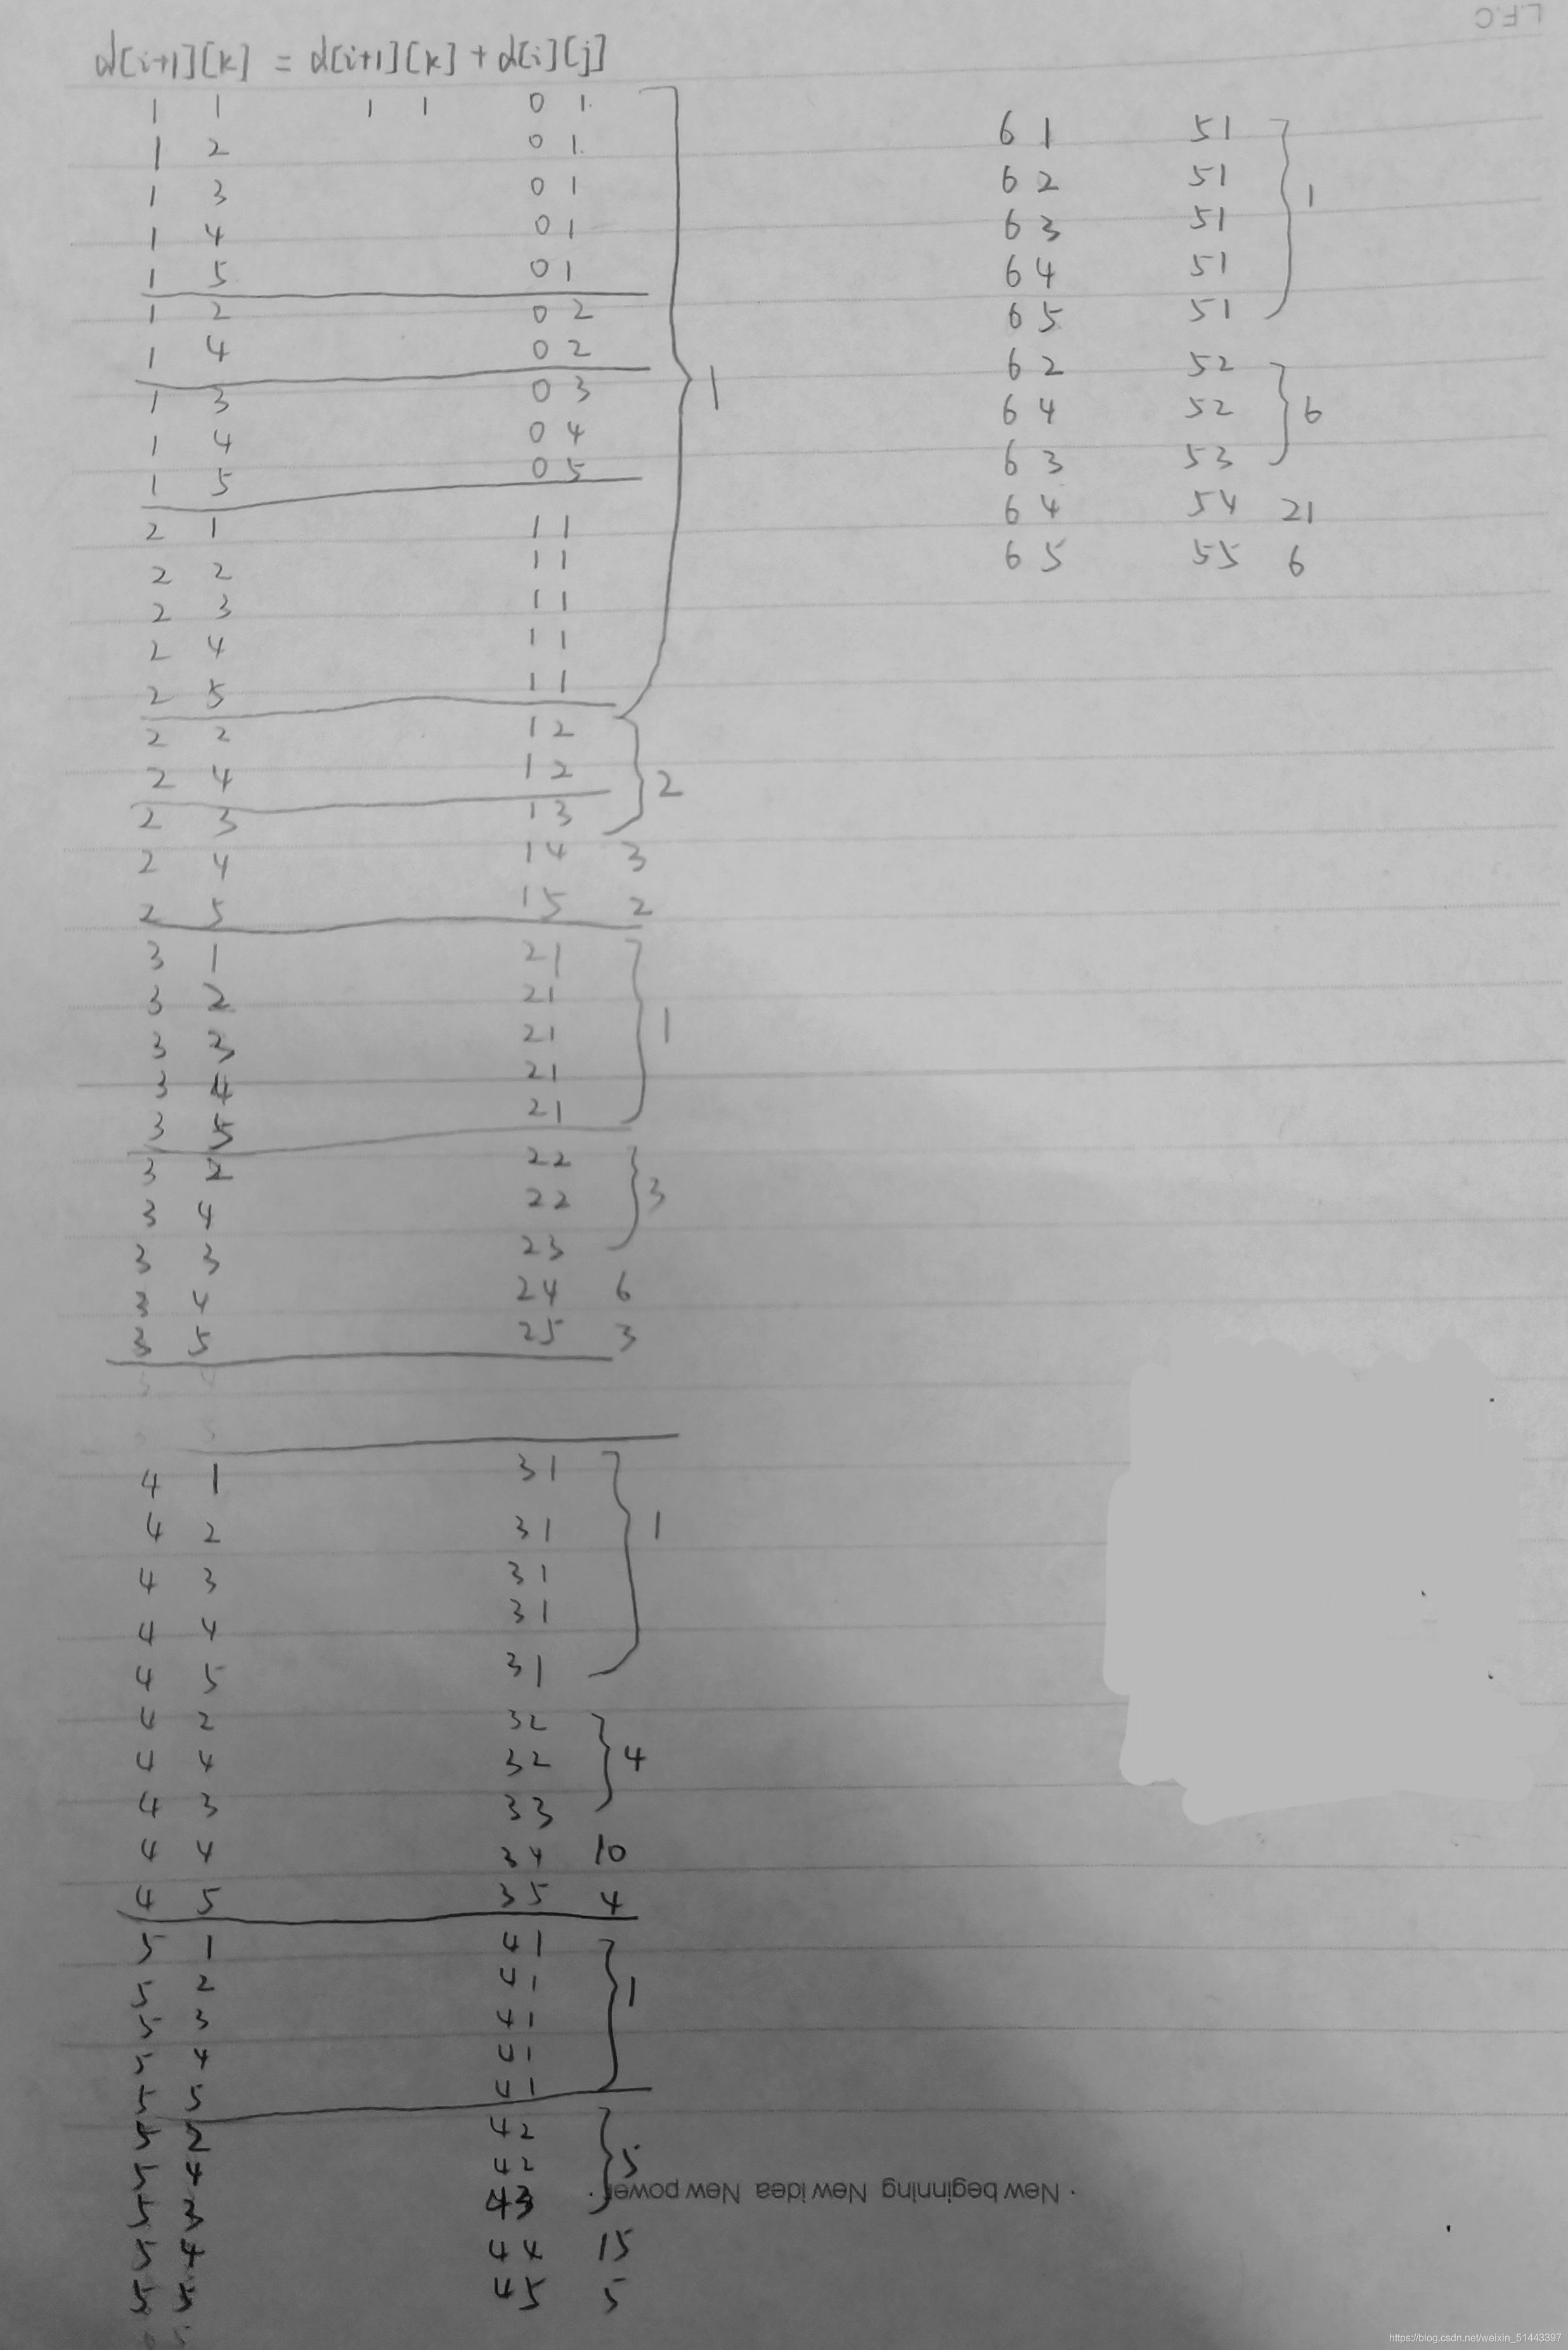 L.F.C
d[i+1][k] = d[i+1][k] + d[i][j]
1 1 1 1 0 1
1 2 0 1
1 3 0 1
1 4 0 1
1 5 0 1
1 2 0 2
1 4 0 2
1 3 0 3
1
1 4 0 4
1 5 0 5
2 1 1 1
2 2 1 1
2 3 1 1
2 4 1 1
2 5 1 1
2 2 1 2
2 4 1 2
2
2 3 1 3
2 4 1 4 3
2 5 1 5 2
3 1 21
3 2 21
3 3 21
1
3 4 21
3 5 21
3 2 22
3 4 22 3
3 3 23
3 4 24 6
3 5 25 3
4 1 31
4 2 31 1
4 3 31
4 4 31
4 5 31
4 2 32
4 4 32 4
4 3 33
4 4 34 10
4 5 35 4
5 1 41
5 2 41 1
5 3 41
5 4 41
5 5 41
5 2 42
5 4 42 5
5 3 43
5 4 44 15
5 5 45 5
6 1 51
6 2 51 1
6 3 51
6 4 51
6 5 51
6 2 52
6 4 52 6
6 3 53
6 4 54 21
6 5 55 6
· New beginning New idea New power ·
https://blog.csdn.net/weixin_51443397